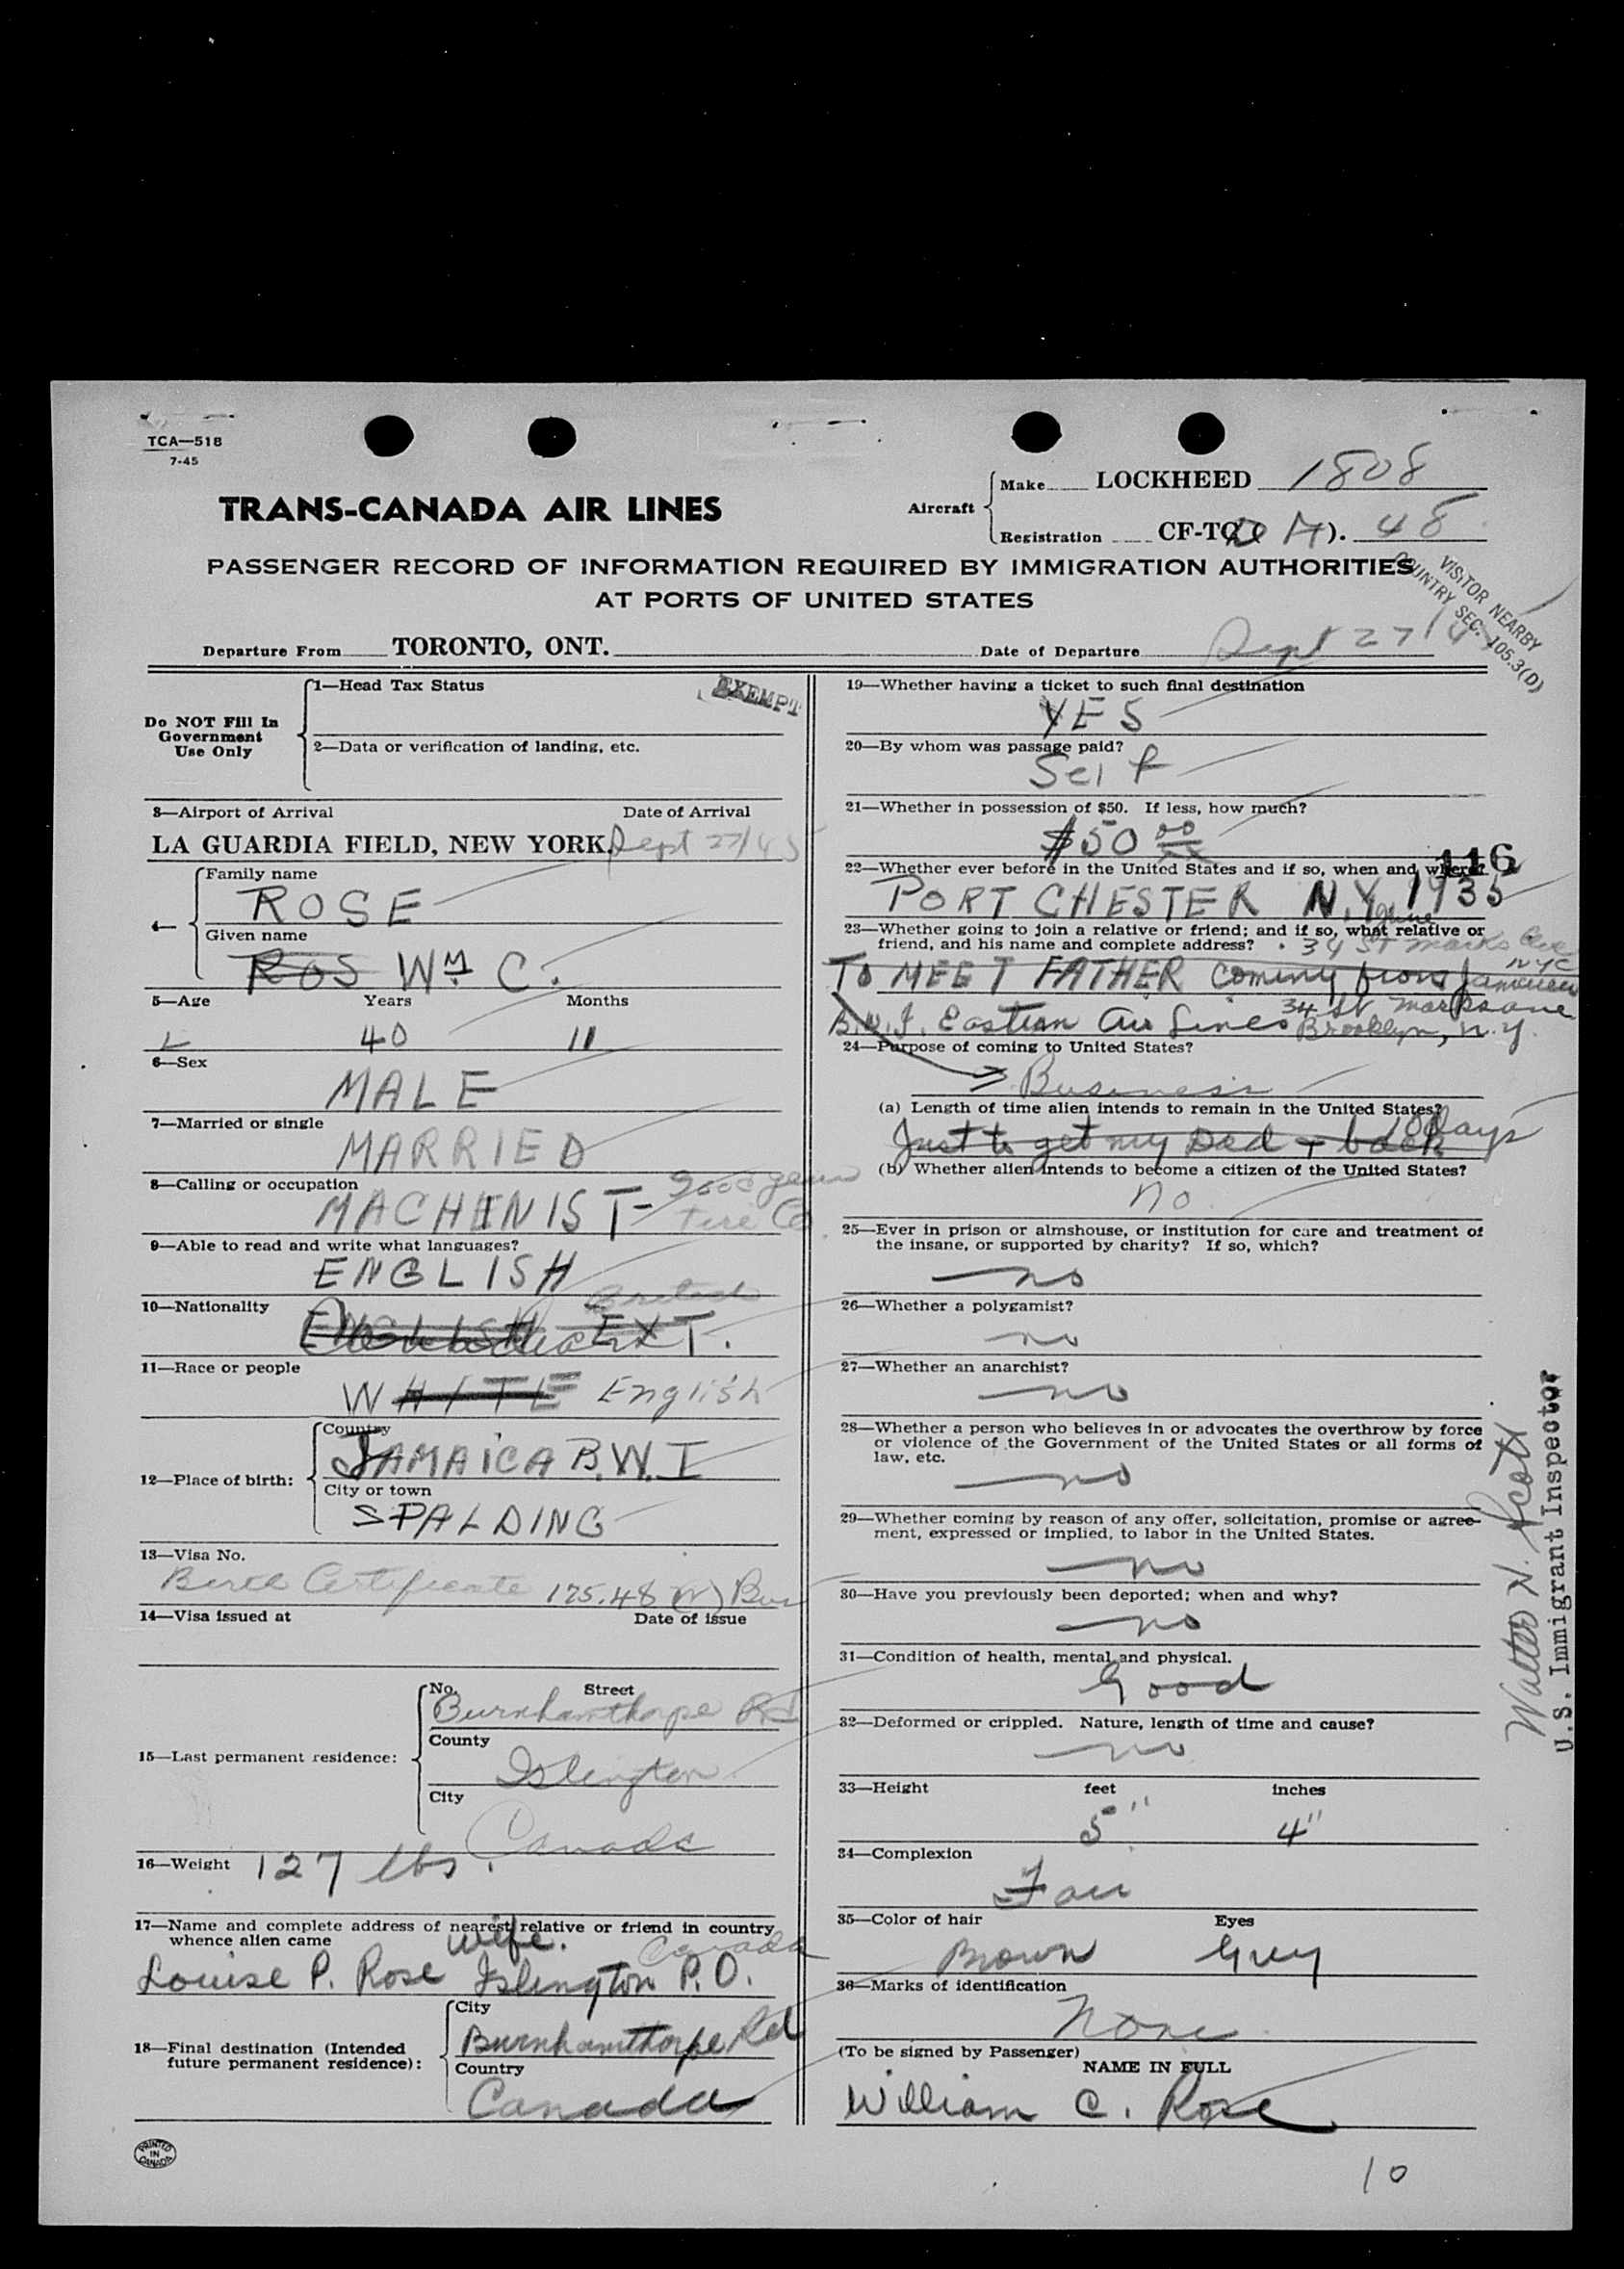 TCA—518
7-45
TRANS-CANADA AIR LINES
Aircraft
Make LOCKHEED 1808
Registration CF-TC( ). 48
PASSENGER RECORD OF INFORMATION REQUIRED BY IMMIGRATION AUTHORITIES
AT PORTS OF UNITED STATES
VISITOR NEARBY
COUNTRY SEC. 105.3(D)
Departure From TORONTO, ONT. Date of Departure Sept 27/45
Do NOT Fill In
Government
Use Only
1—Head Tax Status
EXEMPT
2—Data or verification of landing, etc.
3—Airport of Arrival Date of Arrival
LA GUARDIA FIELD, NEW YORK. Sept 27/45
4—
Family name
ROSE
Given name
ROS Wm C.
5—Age Years Months
40 11
6—Sex
MALE
7—Married or single
MARRIED
8—Calling or occupation
MACHENIST- Goodyear
Tire Co
9—Able to read and write what languages?
ENGLISH
10—Nationality
British
ENGLISH EXT.
11—Race or people
WHITE English
12—Place of birth:
Country
JAMAICA B.W.I
City or town
SPALDING
13—Visa No.
Birth Certificate 175.48
14—Visa issued at Date of issue
15—Last permanent residence:
No. Street
Burnhamthorpe Rd
County
Islington
City
Canada
16—Weight 127 lbs.
17—Name and complete address of nearest relative or friend in country
whence alien came
wife. Canada
Louise P. Rose Islington P.O.
18—Final destination (Intended
future permanent residence):
City
Burnhamthorpe Rd
Country
Canada
PRINTED
IN
CANADA
19—Whether having a ticket to such final destination
YES
20—By whom was passage paid?
Self
21—Whether in possession of $50. If less, how much?
$50 00/xx
116
22—Whether ever before in the United States and if so, when and where?
PORT CHESTER N.Y. 1935
June
23—Whether going to join a relative or friend; and if so, what relative or
friend, and his name and complete address? 34 St Marks Ave
NYC
TO MEET FATHER coming from Jamaica
B.W.I. Eastern Air Lines 34 St Marks ave
Brooklyn, N.Y.
24—Purpose of coming to United States?
Business
(a) Length of time alien intends to remain in the United States?
10 Days
Just to get my Dad + back
(b) Whether alien intends to become a citizen of the United States?
no
25—Ever in prison or almshouse, or institution for care and treatment of
the insane, or supported by charity? If so, which?
no
26—Whether a polygamist?
no
27—Whether an anarchist?
no
28—Whether a person who believes in or advocates the overthrow by force
or violence of the Government of the United States or all forms of
law, etc.
no
29—Whether coming by reason of any offer, solicitation, promise or agree-
ment, expressed or implied, to labor in the United States.
no
30—Have you previously been deported; when and why?
no
31—Condition of health, mental and physical.
Good
32—Deformed or crippled. Nature, length of time and cause?
no
33—Height feet inches
5" 4"
34—Complexion
Fair
35—Color of hair Eyes
Brown Grey
36—Marks of identification
None
(To be signed by Passenger)
NAME IN FULL
William C. Rose
Walter N. Scott
U.S. Immigrant Inspector
10